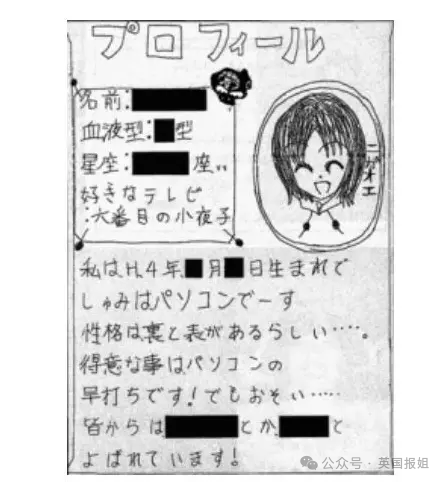 プロフィール
名前:
血液型: 型
星座: 座
好きなテレビ
:六番目の小夜子
ニガオエ
私はH.4年 月 日生まれで
しゅみはパソコンでーす
性格は裏と表があるらしい‥‥。
得意な事はパソコンの
早打ちです!でもおそい‥‥‥
皆からは とか と
よばれています!
公众号・英国报姐